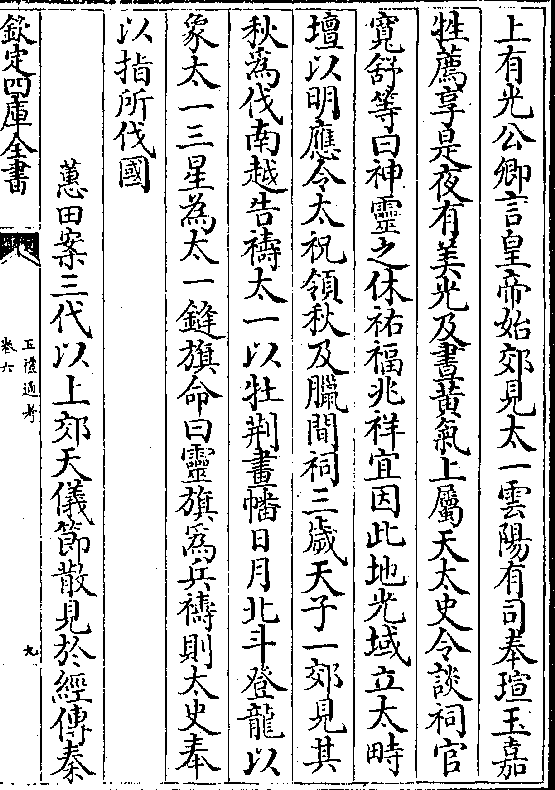 上有光公卿言皇帝始郊見太一雲陽有司奉瑄玉嘉
牲薦享是夜有美光及晝黄氣上屬天太史令談祠官
寛舒等曰神靈之休祐福兆祥宜因此地光域立太畤
壇以明應令太祝領秋及臘間祠三歲天子一郊見其
秋為伐南越告禱太一以牡荆畫幡日月北斗登龍以
象太一三星為太一鏠旗命曰靈旗為兵禱則太史奉
以指所伐國
蕙田案三代以上郊天儀節散見於經傳秦
欽定四庫全書
五禮通考
卷六
九